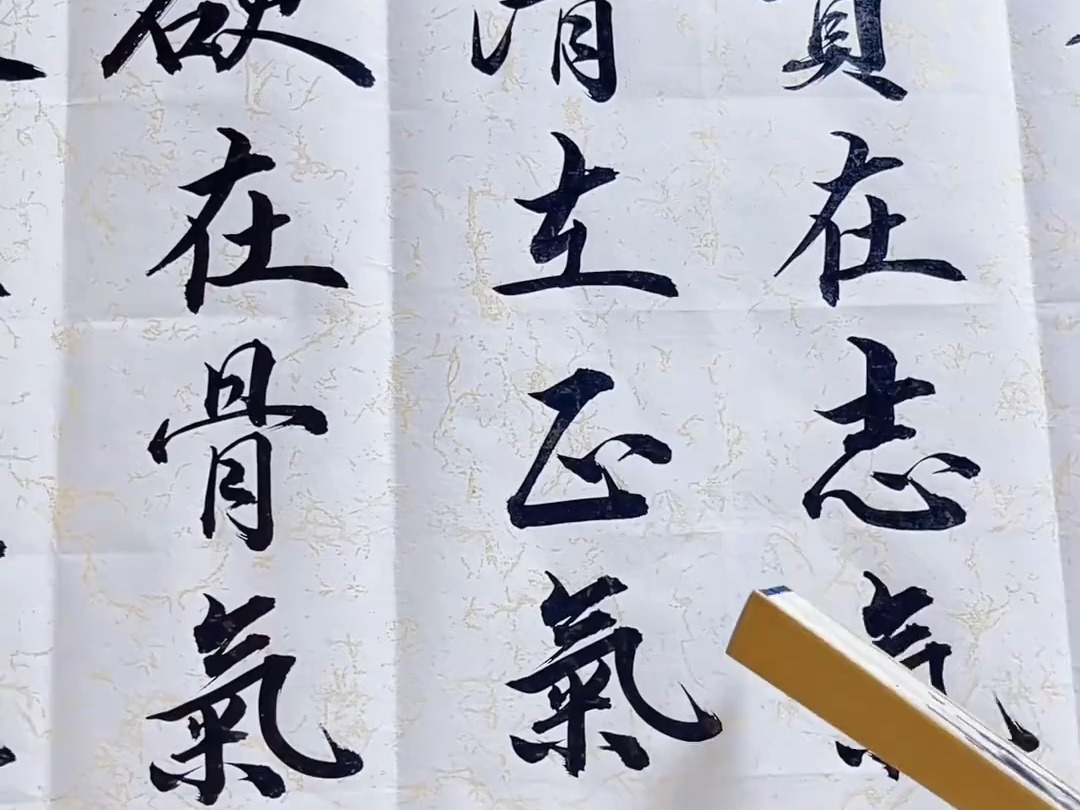 貴在志氣
清在正氣
硬在骨氣